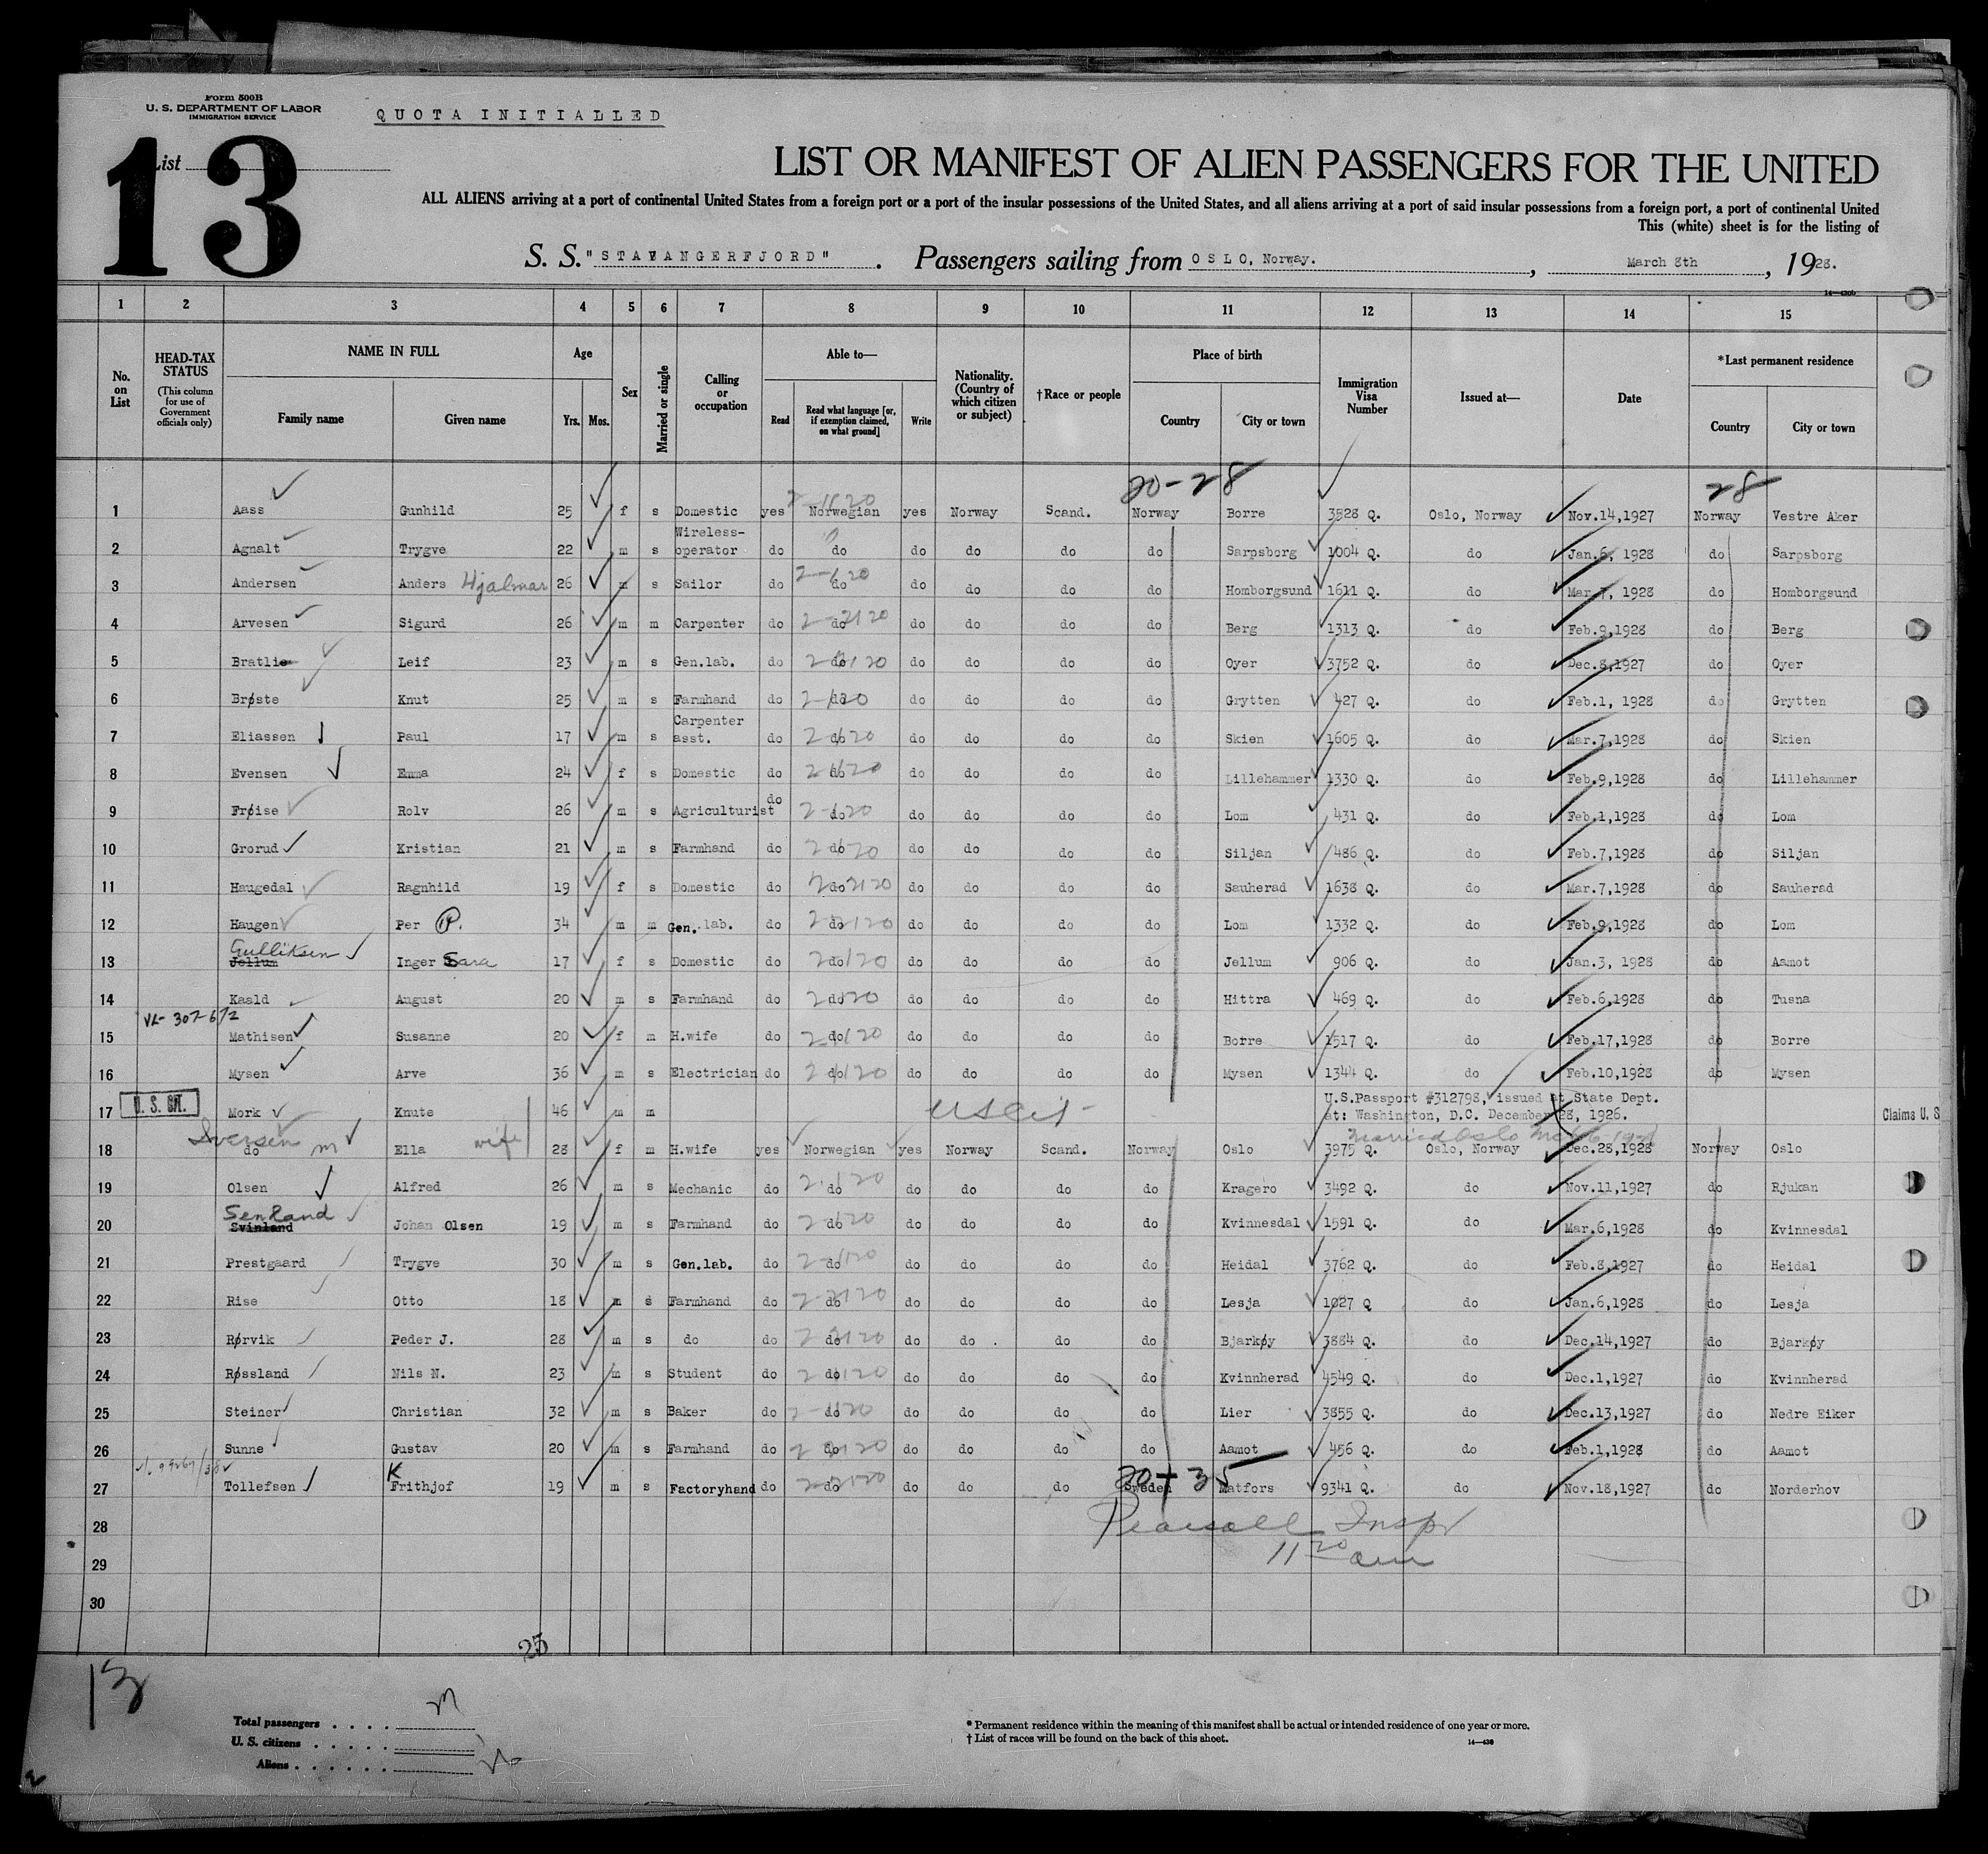 Form 500B
U. S. DEPARTMENT OF LABOR
IMMIGRATION SERVICE
QUOTA INITIALLED
List
13
LIST OR MANIFEST OF ALIEN PASSENGERS FOR THE UNITED
ALL ALIENS arriving at a port of continental United States from a foreign port or a port of the insular possessions of the United States, and all aliens arriving at a port of said insular possessions from a foreign port, a port of continental United
This (white) sheet is for the listing of
S. S. "STAVANGERFJORD". Passengers sailing from OSLO, Norway., March 8th, 1928.
14—430b
1 2 3 4 5 6 7 8 9 10 11 12 13 14 15
No. on List HEAD-TAX STATUS (This column for use of Government officials only) NAME IN FULL Family name Given name Age Yrs. Mos. Sex Married or single Calling or occupation Able to— Read Read what language [or, if exemption claimed, on what ground] Write Nationality. (Country of which citizen or subject) †Race or people Place of birth Country City or town Immigration Visa Number Issued at— Date *Last permanent residence Country City or town
20-28 28
1 Aass Gunhild 25 f s Domestic yes Norwegian yes Norway Scand. Norway Borre 3528 Q. Oslo, Norway Nov.14,1927 Norway Vestre Aker
2 Agnalt Trygve 22 m s Wireless-operator do do do do do do Sarpsborg 1004 Q. do Jan.6, 1928 do Sarpsborg
3 Andersen Anders Hjalmar 26 m s Sailor do do do do do do Homborgsund 1611 Q. do Mar.7, 1928 do Homborgsund
4 Arvesen Sigurd 26 m m Carpenter do do do do do do Berg 1313 Q. do Feb.9,1928 do Berg
5 Bratlie Leif 23 m s Gen.lab. do do do do do do Oyer 3752 Q. do Dec.8,1927 do Oyer
6 Brøste Knut 25 m s Farmhand do do do do do do Grytten 427 Q. do Feb.1, 1928 do Grytten
7 Eliassen Paul 17 m s Carpenter asst. do do do do do do Skien 1605 Q. do Mar.7,1928 do Skien
8 Evensen Emma 24 f s Domestic do do do do do do Lillehammer 1330 Q. do Feb.9,1928 do Lillehammer
9 Frøise Rolv 26 m s Agriculturist do do do do do do Lom 431 Q. do Feb.1,1928 do Lom
10 Grorud Kristian 21 m s Farmhand do do do do do do Siljan 486 Q. do Feb.7,1928 do Siljan
11 Haugedal Ragnhild 19 f s Domestic do do do do do do Sauherad 1638 Q. do Mar.7,1928 do Sauherad
12 Haugen Per P. 34 m m Gen. lab. do do do do do do Lom 1332 Q. do Feb.9,1928 do Lom
Gulliksen
13 Jellum Inger Sara 17 f s Domestic do do do do do do Jellum 906 Q. do Jan.3, 1928 do Aamot
14 Kaald August 20 m s Farmhand do do do do do do Hittra 469 Q. do Feb.6,1928 do Tusna
15 Mathisen Susanne 20 f m H.wife do do do do do do Borre 1517 Q. do Feb.17,1928 do Borre
16 Mysen Arve 36 m s Electrician do do do do do do Mysen 1344 Q. do Feb.10,1928 do Mysen
17 U. S. CIT. Mork Knute 46 m m US Cit- U.S.Passport #312798, issued at State Dept.
at: Washington, D.C. December 28, 1926. Claims U. S
Iversen wife Married Oslo
18 do m Ella 28 f m H.wife yes Norwegian yes Norway Scand. Norway Oslo 3975 Q. Oslo, Norway Dec.28,1928 Norway Oslo
19 Olsen Alfred 26 m s Mechanic do do do do do do Kragero 3492 Q. do Nov.11,1927 do Rjukan
20 Svinland Johan Olsen 19 m s Farmhand do do do do do do Kvinnesdal 1591 Q. do Mar.6,1928 do Kvinnesdal
21 Prestgaard Trygve 30 m s Gen.lab. do do do do do do Heidal 3762 Q. do Feb.8,1927 do Heidal
22 Rise Otto 18 m s Farmhand do do do do do do Lesja 1027 Q do Jan.6,1928 do Lesja
23 Rørvik Peder J. 28 m s do do do do do do do Bjarkøy 3884 Q. do Dec.14,1927 do Bjarkøy
24 Røssland Nils N. 23 m s Student do do do do do do Kvinnherad 4549 Q. do Dec.1,1927 do Kvinnherad
25 Steiner Christian 32 m s Baker do do do do do do Lier 3855 Q. do Dec.13,1927 do Nedre Eiker
26 Sunne Gustav 20 m s Farmhand do do do do do do Aamot 456 Q. do Feb.1,1928 do Aamot
20 + 35
27 Tollefsen K Frithjof 19 m s Factoryhand do do do do do Sweden Matfors 9341 Q. do Nov.18,1927 do Norderhov
28 Pearsall Inspr
29 11 20 am
30
25
13
Total passengers
U. S. citizens
Aliens
* Permanent residence within the meaning of this manifest shall be actual or intended residence of one year or more.
† List of races will be found on the back of this sheet.
14—430